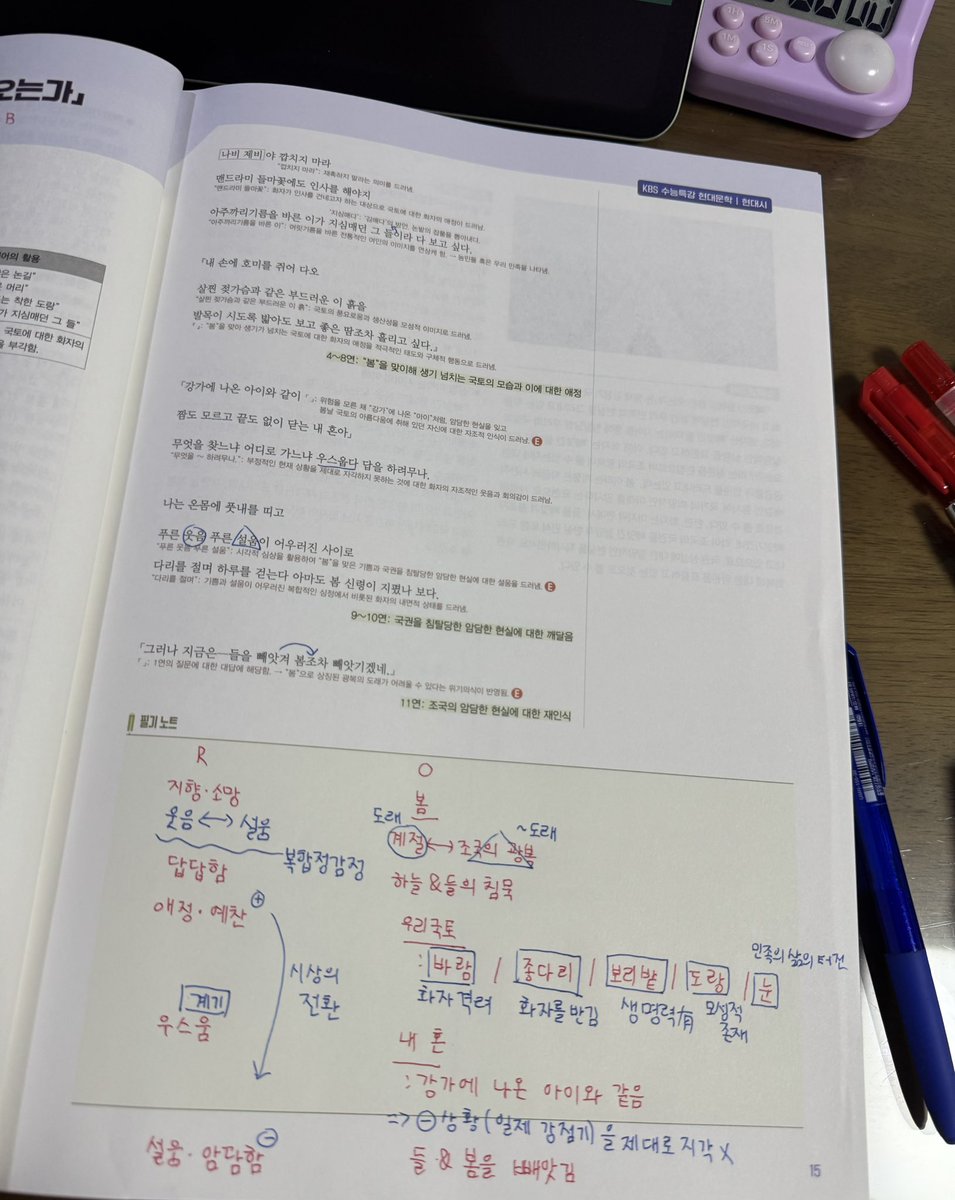 오는가」
B
어의 활용
은 논길"
머리"
는 착한 도랑"
가 지심매던 그 들"
국토에 대한 화자의
을 부각함.
KBS 수능특강 현대문학 | 현대시
나비 제비야 깝치지 마라
"깝치지 마라": 재촉하지 말라는 의미를 드러냄.
맨드라미 들마꽃에도 인사를 해야지
"맨드라미 들마꽃": 화자가 인사를 건네고자 하는 대상으로 국토에 대한 화자의 애정이 드러남.
'지심매다': '김매다'의 방언. 논밭의 잡풀을 뽑아내다.
아주까리기름을 바른 이가 지심매던 그 들이라 다 보고 싶다.
"아주까리기름을 바른 이": 머릿기름을 바른 전통적인 여인의 이미지를 연상케 함. → 농민들 혹은 우리 민족을 나타냄.
「내 손에 호미를 쥐어 다오
살찐 젖가슴과 같은 부드러운 이 흙을
"살찐 젖가슴과 같은 부드러운 이 흙": 국토의 풍요로움과 생산성을 모성적 이미지로 드러냄.
발목이 시도록 밟아도 보고 좋은 땀조차 흘리고 싶다.」
「」: "봄"을 맞아 생기가 넘치는 국토에 대한 화자의 애정을 적극적인 태도와 구체적 행동으로 드러냄.
4~8연: "봄"을 맞이해 생기 넘치는 국토의 모습과 이에 대한 애정
「강가에 나온 아이와 같이 「」: 위험을 모른 채 "강가"에 나온 "아이"처럼, 암담한 현실을 잊고
봄날 국토의 아름다움에 취해 있던 자신에 대한 자조적 인식이 드러남. E
짬도 모르고 끝도 없이 닫는 내 혼아」
무엇을 찾느냐 어디로 가느냐 우스웁다 답을 하려무나.
"무엇을 ~ 하려무나.": 부정적인 현재 상황을 제대로 자각하지 못하는 것에 대한 화자의 자조적인 웃음과 회의감이 드러남.
나는 온몸에 풋내를 띠고
푸른 웃음 푸른 설움이 어우러진 사이로
"푸른 웃음 푸른 설움": 시각적 심상을 활용하여 "봄"을 맞은 기쁨과 국권을 침탈당한 암담한 현실에 대한 설움을 드러냄. E
다리를 절며 하루를 걷는다 아마도 봄 신령이 지폈나 보다.
"다리를 절며": 기쁨과 설움이 어우러진 복합적인 심정에서 비롯된 화자의 내면적 상태를 드러냄.
9~10연: 국권을 침탈당한 암담한 현실에 대한 깨달음
「그러나 지금은―들을 빼앗겨 봄조차 빼앗기겠네.」
「」: 1연의 질문에 대한 대답에 해당함. → "봄"으로 상징된 광복의 도래가 어려울 수 있다는 위기의식이 반영됨. E
11연: 조국의 암담한 현실에 대한 재인식
필기 노트
R
지향·소망
웃음 ↔ 설움
복합정감정
답답함
애정·예찬 +
시상의
전환
계기
우스움
설움·암담함 -
O
봄
도래 ~도래
계절 ↔ 조국의 광복
하늘 & 들의 침묵
우리국토
민족의 삶의 터전
: 바람 / 종다리 / 보리밭 / 도랑 / 눈
화자 격려 화자를 반김 생명력有 모성적
존재
내 혼
: 강가에 나온 아이와 같음
=> - 상황 (일제 강점기)을 제대로 지각 X
들 & 봄을 빼앗김
15